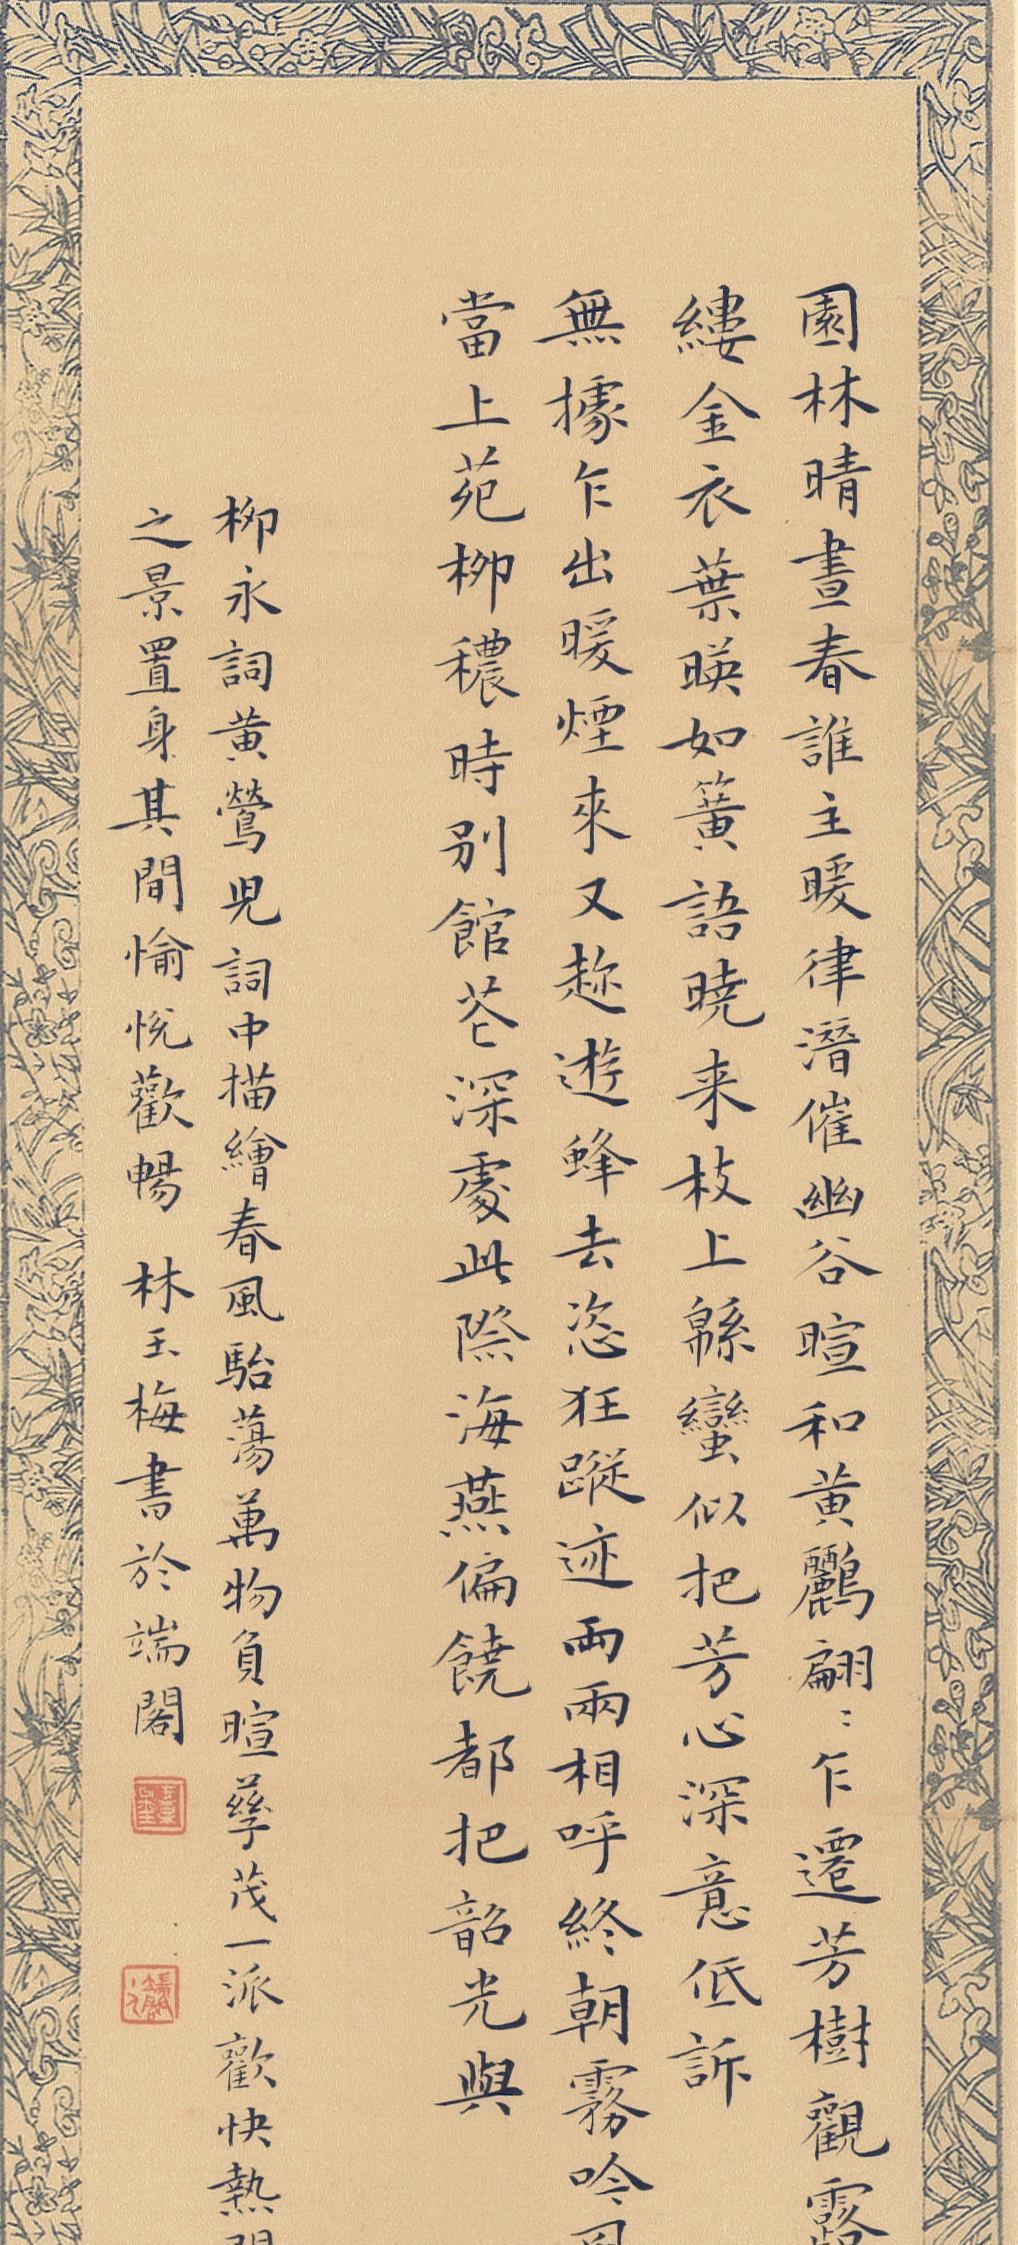 園林晴晝春誰主暖律潛催幽谷暄和黃鸝翩〻乍遷芳樹觀露
縷金衣葉暎如簧語曉来枝上緜蠻似把芳心深意低訴
無據乍出暖煙來又趂遊蜂去恣狂蹤迹兩兩相呼終朝霧吟風
當上苑柳穠時別館花深處此際海燕偏饒都把韶光與
柳永詞黃鶯兒詞中描繪春風駘蕩萬物負暄孳茂一派歡快熱鬧
之景置身其間愉悅歡暢 林玉梅書於端閣